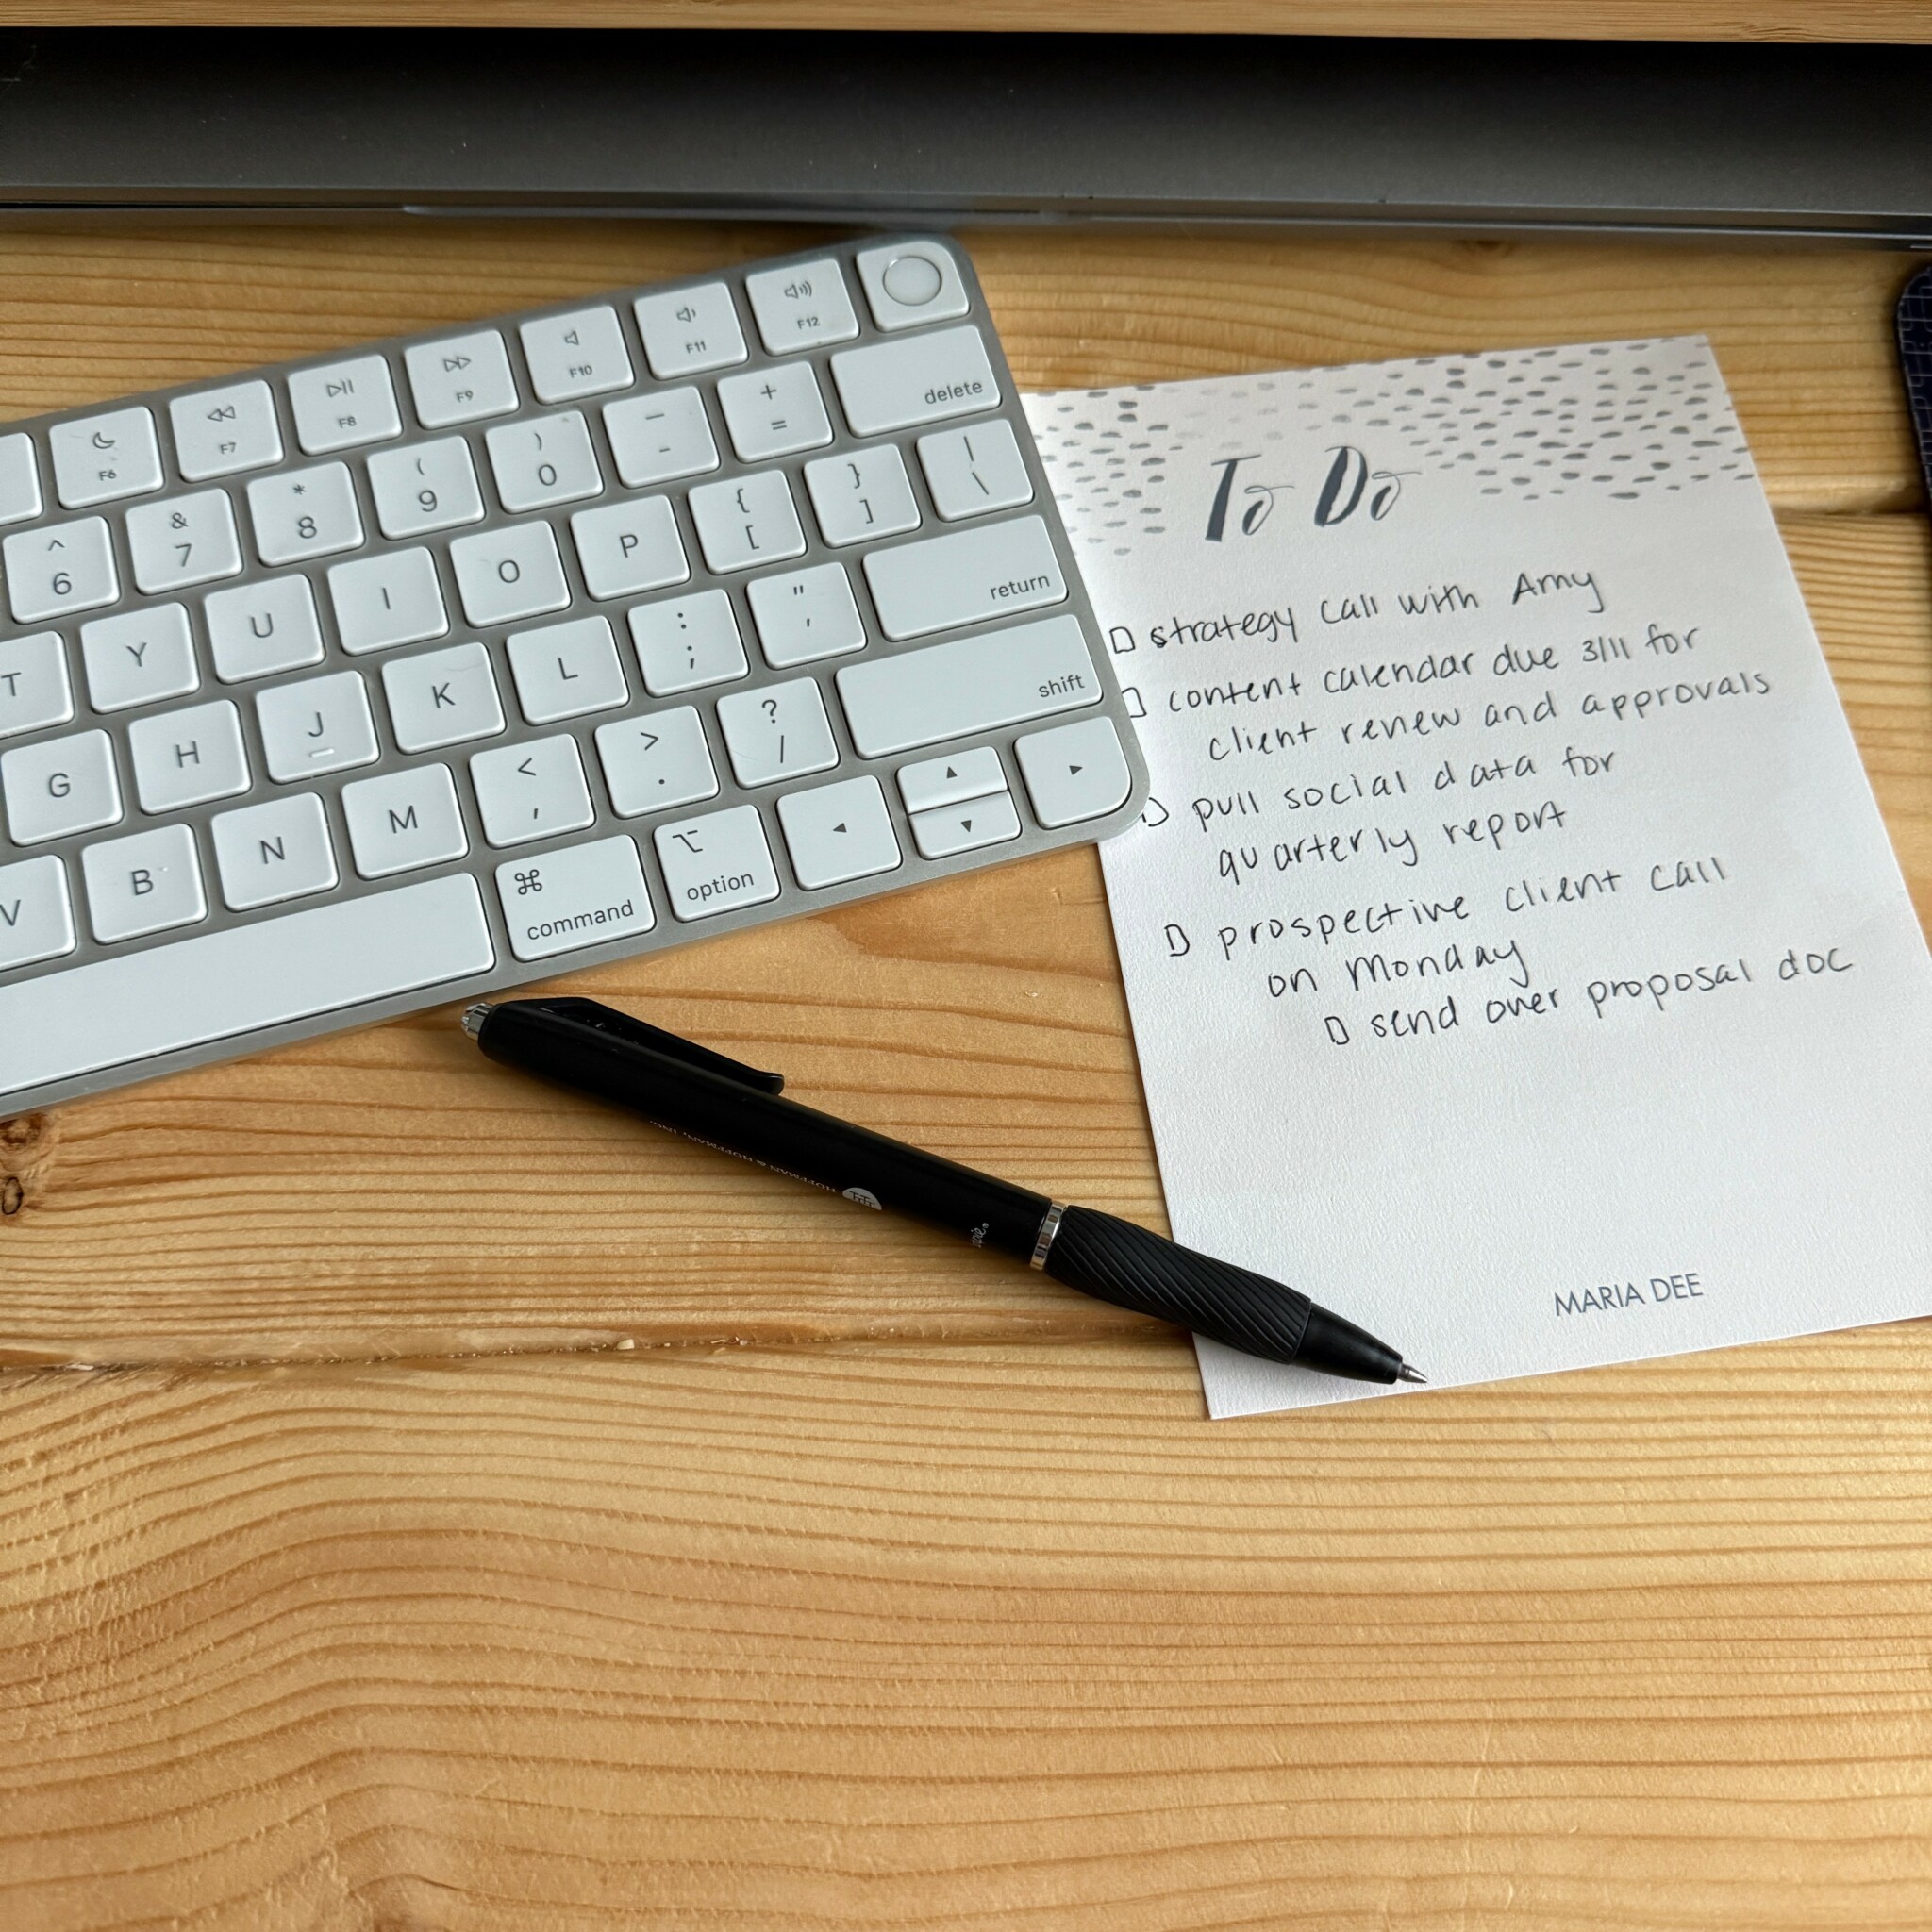 F6 F7 F8 F9 F10 F11 F12
^ & * ( ) _ + delete
6 7 8 9 0 - =
T Y U I O P { } |
[ ] \
G H J K L : " return
; '
V B N M < > ? shift
, . /
⌘ command option
To Do
strategy call with Amy
content calendar due 3/11 for
client review and approvals
pull social data for
quarterly report
prospective client call
on Monday
send over proposal doc
MARIA DEE
HOFFMAN & HOFFMAN, INC.